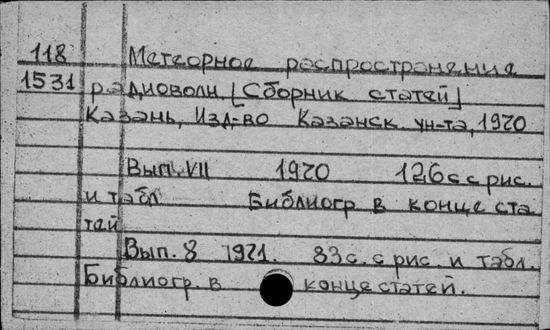 118 Метеорное распространение
1531 радиоволн [Сборник статей]
Казань, Изд-во Казанск. ун-та, 1970
Вып. VII 1970 126 с с рис.
и табл Библиогр в конце ста
тей
Вып. 8 1971. 83 с. с рис. и табл.
Библиогр. в конце статей.